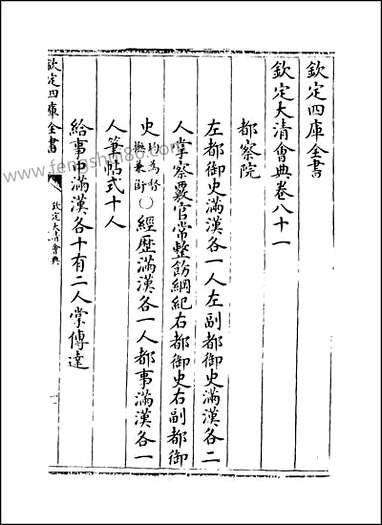 欽定四庫全書
欽定大清會典卷八十一
都察院
左都御史滿漢各一人左副都御史滿漢各二
人掌察覈官常整飭綱紀右都御史右副都御
史均為督撫兼銜經歷滿漢各一人都事滿漢各一
人筆帖式十人
給事中滿漢各十有二人掌傳達
欽定四庫全書
欽定大清會典